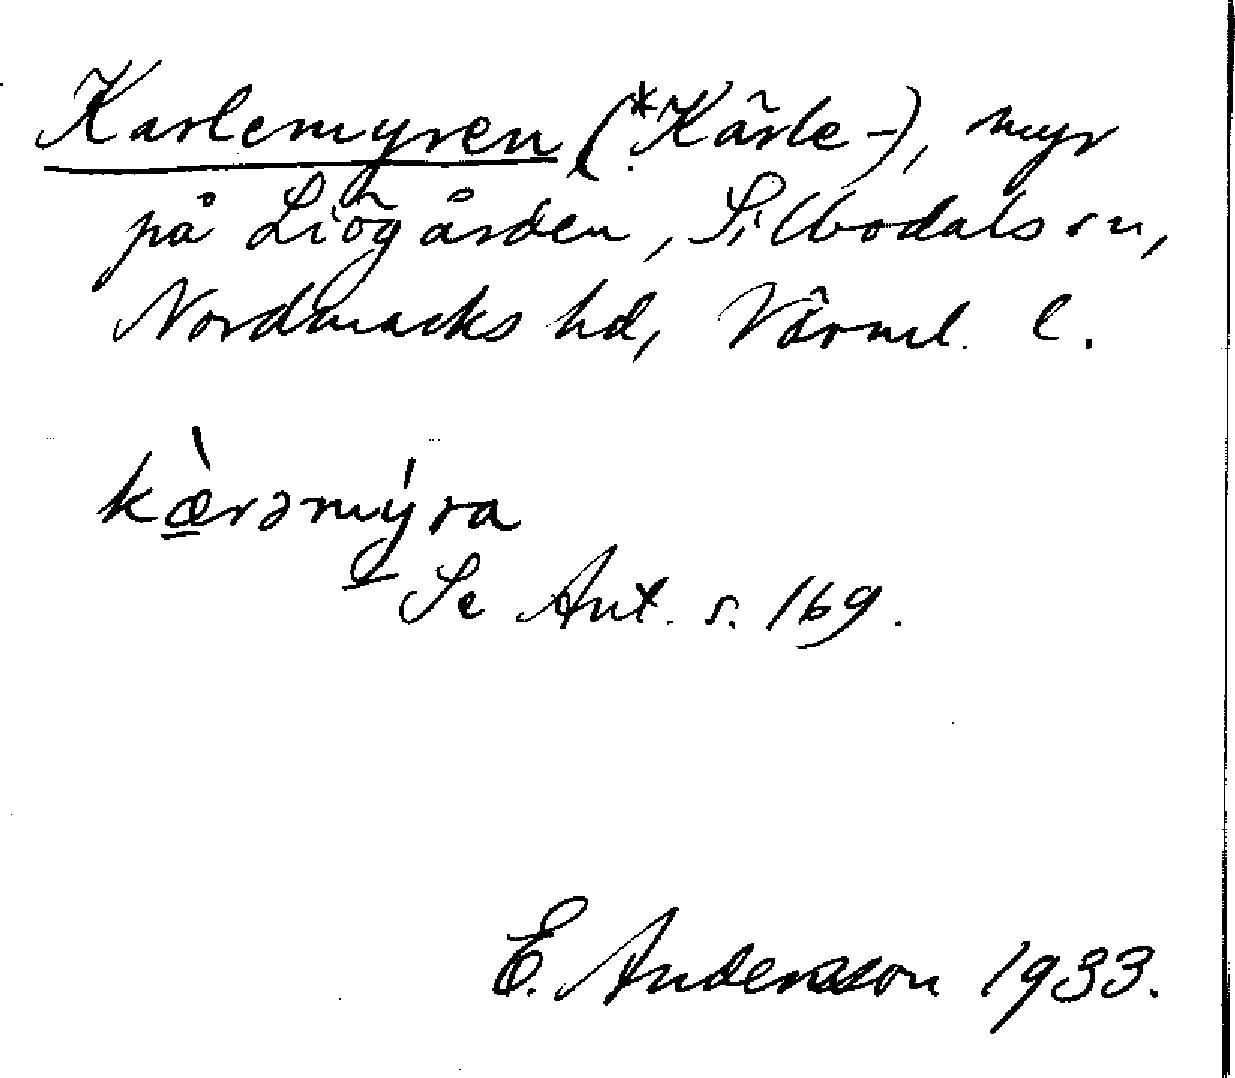 Karlemyren (*Kärle-), myr
på Liögården, Silbodals sn,
Nordmarks hd, Värml. l.
kæ̀rəmýra
Se Ant. s. 169.
E. Andersson 1933.